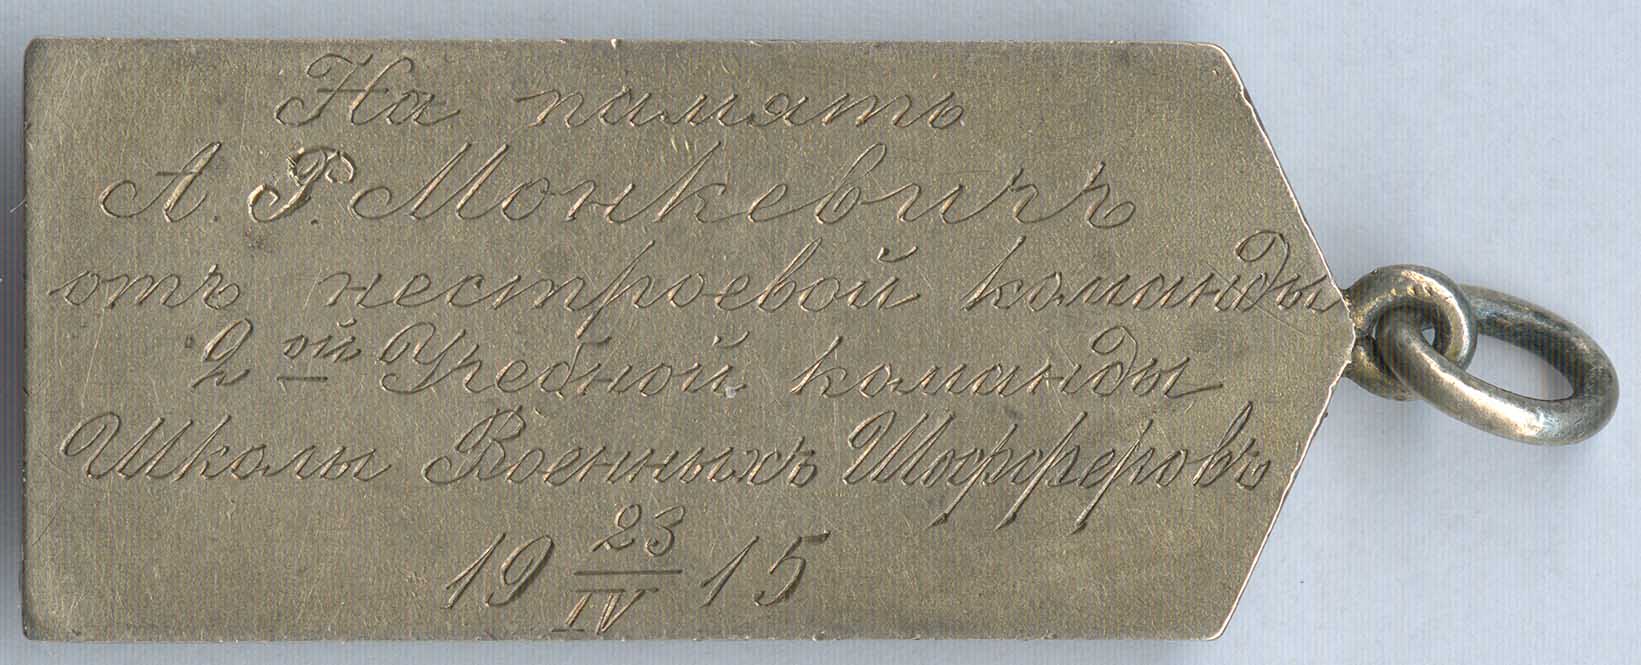 На память
А. Р. Монкевичъ
отъ нестроевой команды
2ой Учебной команды
Школы Военныхъ Шофферовъ
19 23/IV 15